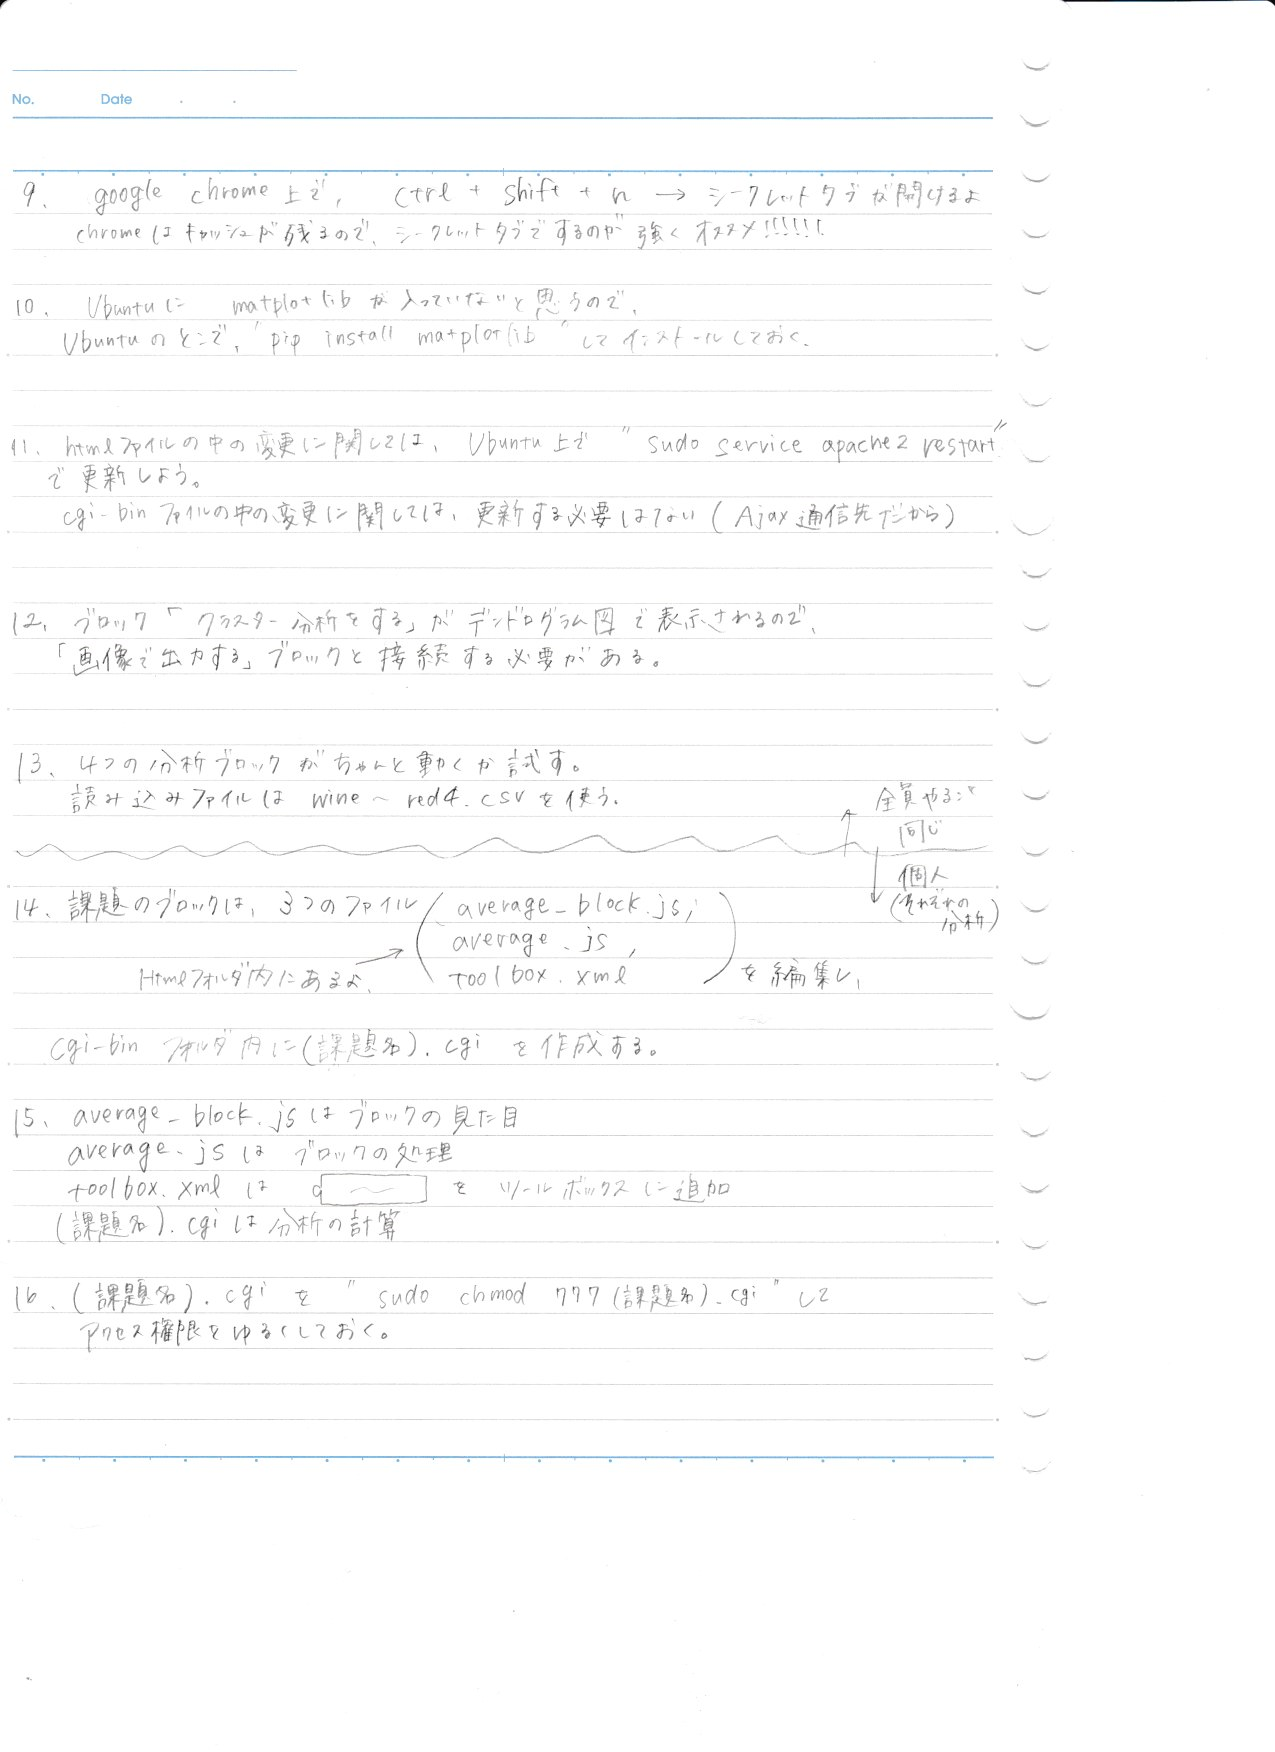 No. Date . .
9. google chrome上で, ctrl + shift + n → シークレットタブが開けるよ
chromeはキャッシュが残るので、シークレットタブでするのが強くオススメ!!!!!!
10. Ubuntuに matplotlibが入っていないと思うので、
Ubuntuのとこで、"pip install matplotlib"してインストールしておく、
11. htmlファイルの中の変更に関しては、Ubuntu上で "sudo service apache2 restart"
で更新しよう。
cgi-binファイルの中の変更に関しては、更新する必要はない(Ajax通信先だから)
12. ブロック「クラスター分析をする」がデンドログラム図で表示されるので、
「画像で出力する」ブロックと接続する必要がある。
13、4つの分析ブロックがちゃんと動くか試す。
読み込みファイルは wine~red4.csvを使う、
↑ 全員やること
同じ
↓ 個人
(それぞれの
分析)
14、課題のブロックは、3つのファイル(average_block.js,
average.js,
Htmlフォルダ内にあるよ、→ toolbox.xml)を編集し、
cgi-binフォルダ内に(課題名).cgiを作成する。
15、average_block.jsはブロックの見た目
average.jsはブロックの処理
toolbox.xmlは 〜 をツールボックスに追加
(課題名).cgiは分析の計算
16、(課題名).cgiを "sudo chmod 777(課題名).cgi"して
アクセス権限をゆるくしておく。